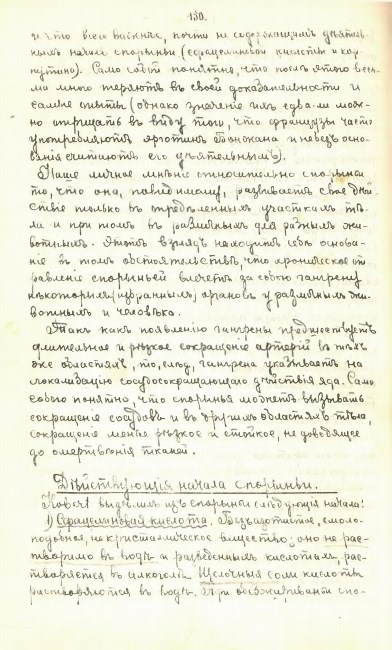 130.
и что всего важнѣе, почти не содержащимъ дѣятель-
нымъ начала спорыньи (сфацелиновой кислоты и кор-
нутина). Само собой понятно, что послѣ этого весь-
ма много теряютъ въ своей доказательности и
самые опыты (однако значеніе ихъ едва-ли мож-
но отрицать въ виду того, что французы часто
употребляютъ эрготинъ Бонжана и небезъосно-
ванія считаютъ его дѣятельнымъ).
Наше личное мнѣніе относительно спорыньи
то, что она, повидимому, развиваетъ свое дѣй
ствіе только въ опредѣленныхъ участкахъ тѣ-
ла и при томъ въ различныхъ для разныхъ жи-
вотныхъ. Этотъ взглядъ находитъ себѣ основа-
ніе въ томъ обстоятельствѣ, что хроническое от
равленіе спорыньей влечетъ за собою гангрену
нѣкоторыхъ, избранныхъ, органовъ у различныхъ жи-
вотныхъ и человѣка.
Такъ какъ появленію гангрены предшествуетъ
длительное и рѣзкое сокращеніе артерій въ тѣхъ
же областяхъ, то, слѣд., гангрена указываетъ на
локализацію сосудосокращающаго дѣйствія яда. Само
собою понятно, что спорынья можетъ вызывать
сокращеніе сосудовъ и въ другихъ областяхъ тѣла,
сокращеніе менѣе рѣзкое и стойкое, не доводящее
до омертвѣнія тканей.
Дѣйствующія начала спорыньи.
Kobert выдѣлилъ изъ спорыньи слѣдующія начала:
1) Сфацелиновая кислота. Безцвѣтное, смоло-
подобное, некристаллическое вещество; оно не рас-
творимо въ водѣ и разведенныхъ кислотахъ, рас-
творяется въ алкоголѣ. Щелочныя соли кислоты
растворяются въ водѣ. При взбалтываніи спо-